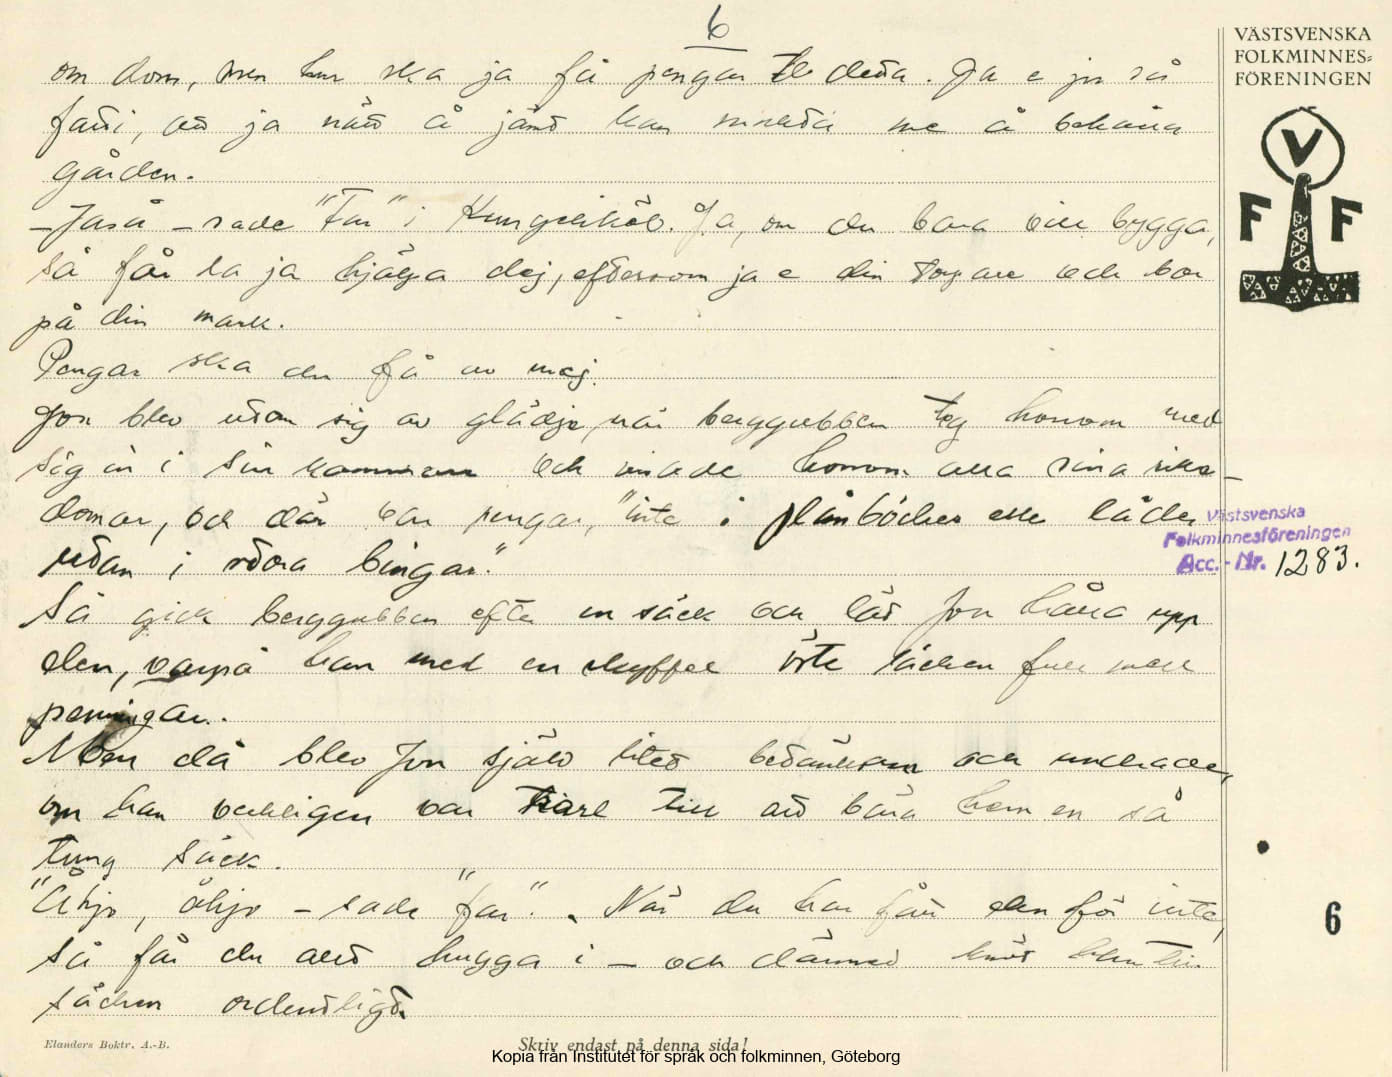 6
VÄSTSVENSKA
FOLKMINNES=
FÖRENINGEN
V
F F
om dom, men hur ska ja få pengar te detta. Ja e ju så
fatti, att ja nätt å jämt kan me å behålla
gården.
– Jaså – sade "Far" i Kungeliköb. Ja, om du bara vill bygga,
så får la ja hjälpa dej, eftersom ja e din och bor
på din mark.
Pengar ska du få av mej.
Jon blev utom sig av glädje, när berggubben tog honom med
sig in i sin kammare och visade honom alla sina rike-
domar, och där var pengar, "inte i plånböcker eller lådor
utan i stora bingar."
Så gick berggubben efter en säck och lät Jon hålla upp
den, varpå han med en skyffel öste säcken full med
penningar.
Men då blev Jon själv litet betänksam och undrade,
om han verkligen var karl till att bära hem en så
tung säck.
"Åhjo, åhjo – sade "far". När du har fått den för inte,
så får du allt hugga i – och därmed knöt han till
säcken ordentligt.
Västsvenska
Folkminnesföreningen
Acc.-Nr. 1283.
6
Elanders Boktr. A.-B.
Skriv endast på denna sida!
Kopia från Institutet för språk och folkminnen, Göteborg